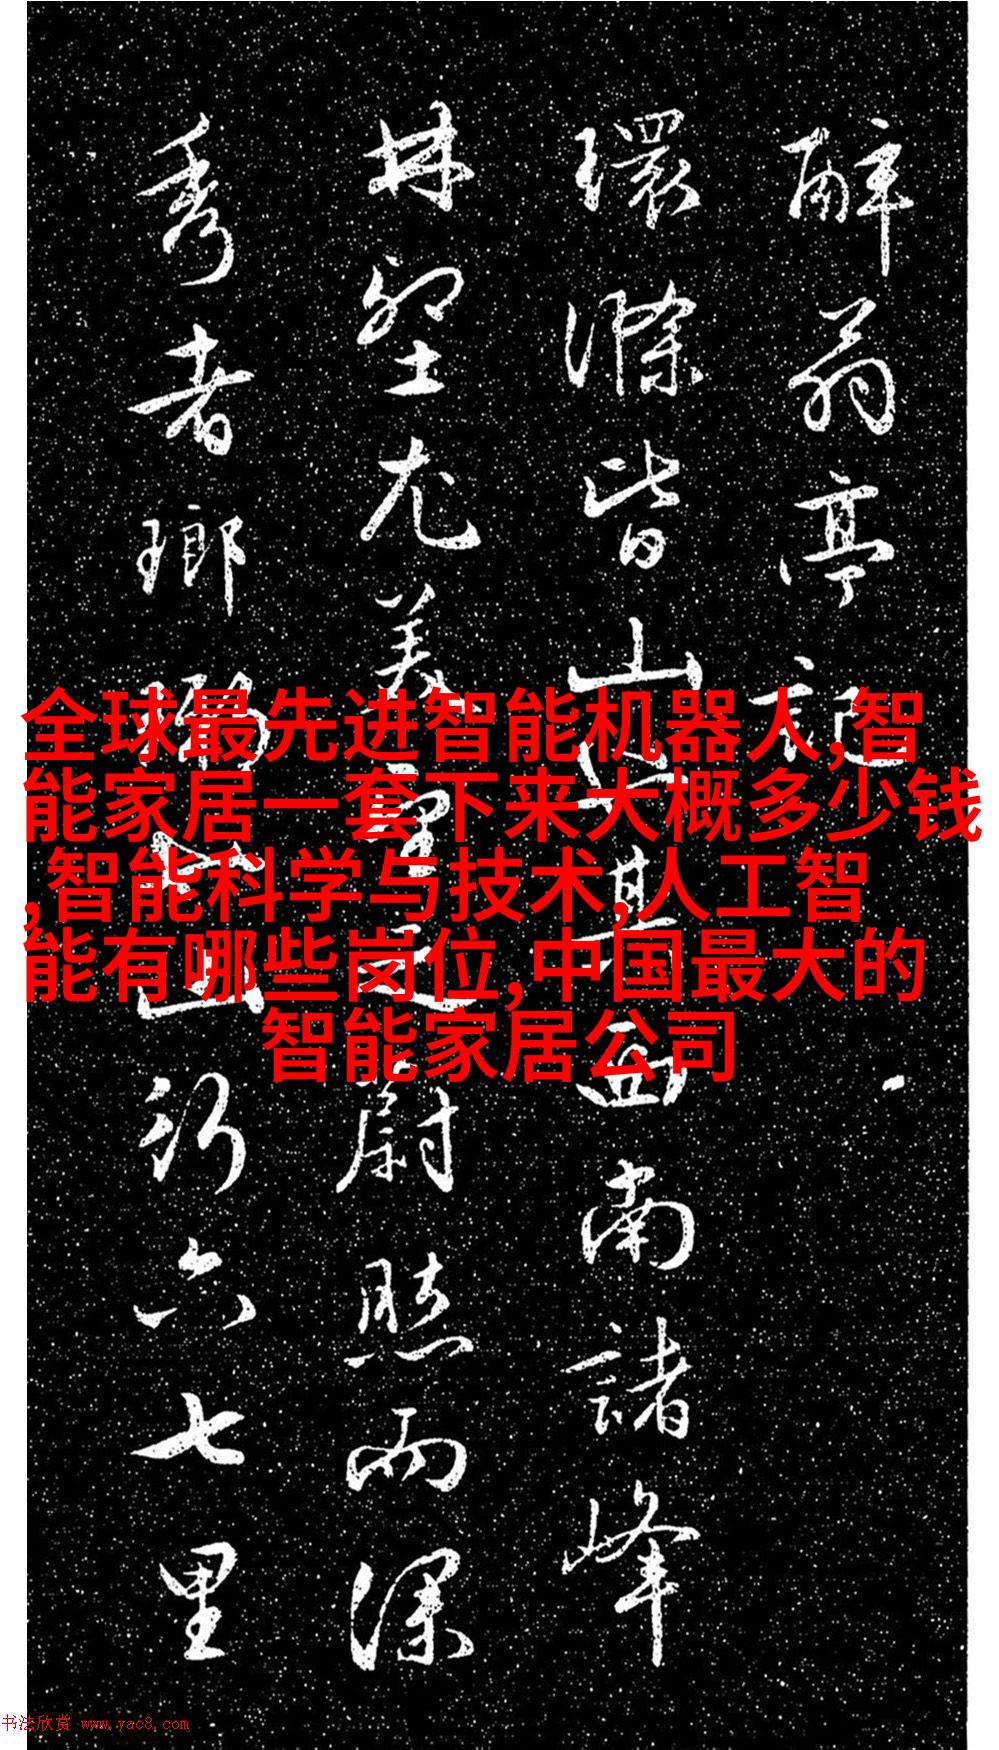 醉翁亭記
環滁皆山也其西南諸峰
林壑尤美望之蔚然而深
秀者瑯琊也山行六七里
全球最先进智能机器人,智
能家居一套下来大概多少钱
,智能科学与技术,人工智
能有哪些岗位,中国最大的
智能家居公司
书法欣赏 www.yac8.com